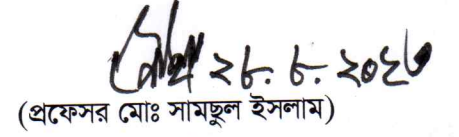 ২৮.৮.২০২৩
(প্রফেসর মোঃ সামছুল ইসলাম)